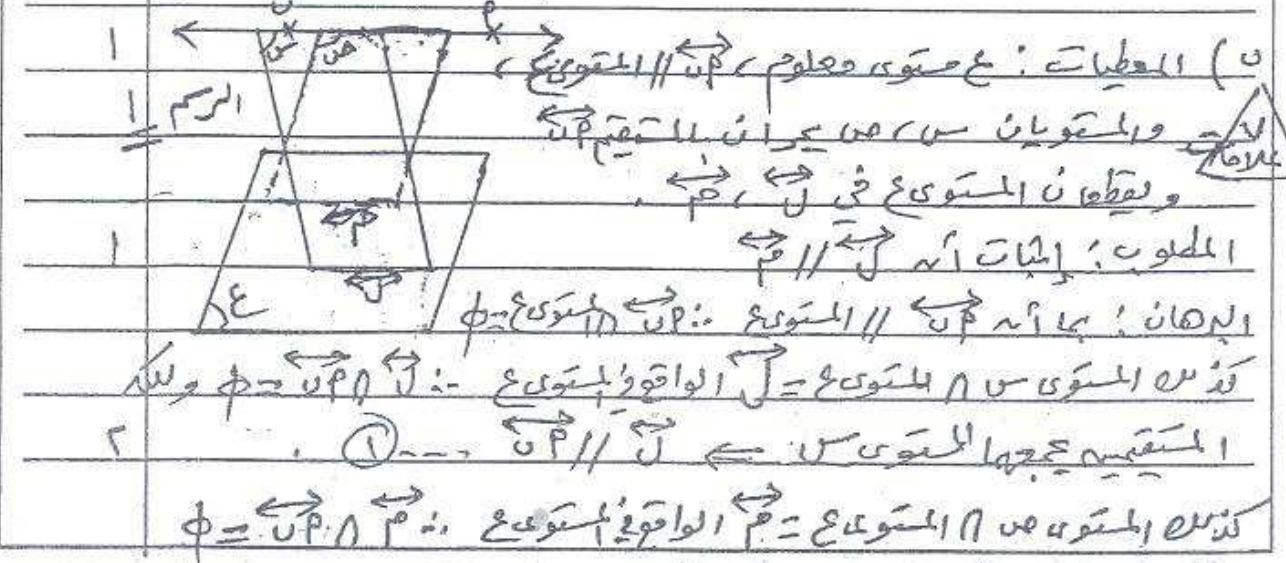 ب) المعطيات : ع مستوى معلوم ، أب // المستوى ع ،
والمستويان س ، ص يمران بالمستقيم أب
ويقطعان المستوى ع في ل ، م .
المطلوب : إثبات أن ل // م
البرهان : بما أن أب // المستوى ع ∴ أب ∩ المستوى ع = ϕ
كذلك المستوى س ∩ المستوى ع = ل الواقع في المستوى ع ∴ ل ∩ أب = ϕ ولكن
المستقيمين يجمعها المستوى س ⇐ ل // أب ---- ① .
كذلك المستوى ص ∩ المستوى ع = م الواقع في المستوى ع ∴ م ∩ أب = ϕ
ب
أ
س
ص
م
ل
ع
١
الرسم ١
١
٢
علامات